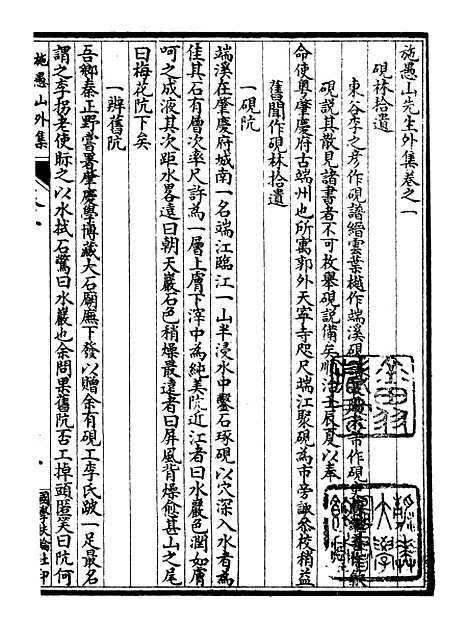 施愚山先生外集卷之一
硯林拾遺
東谷李之彥作硯譜縉雲葉樾作端溪硯
硯說其散見諸書者不可枚舉硯說備矣順治壬辰夏以奉
命使粵肇慶府古端州也所寓郭外天寧寺咫尺端江聚硯為市旁諏叅稽稍益
舊聞作硯林拾遺
一硯阬
端溪在肇慶府城南一名端江臨江一山半浸水中鑿石琢硯以穴深入水者為
佳其石有層次率尺許為一層上膚下滓中為純美阬近江者曰水巖色潤如膚
呵之成液其次距水畧遠曰朝天巖石色稍燥最遠者曰屏風背燥愈甚山之尾
曰梅花阬下矣
一辨舊阬
吾鄉秦正野嘗署肇慶學博藏大石廟廡下發以贈余有硯工李氏跛一足最名
謂之李拐老使眎之以水拭石驚曰水巖也余問果舊阬否工掉頭匿笑曰阬何
施愚山外集
國學扶輪社印